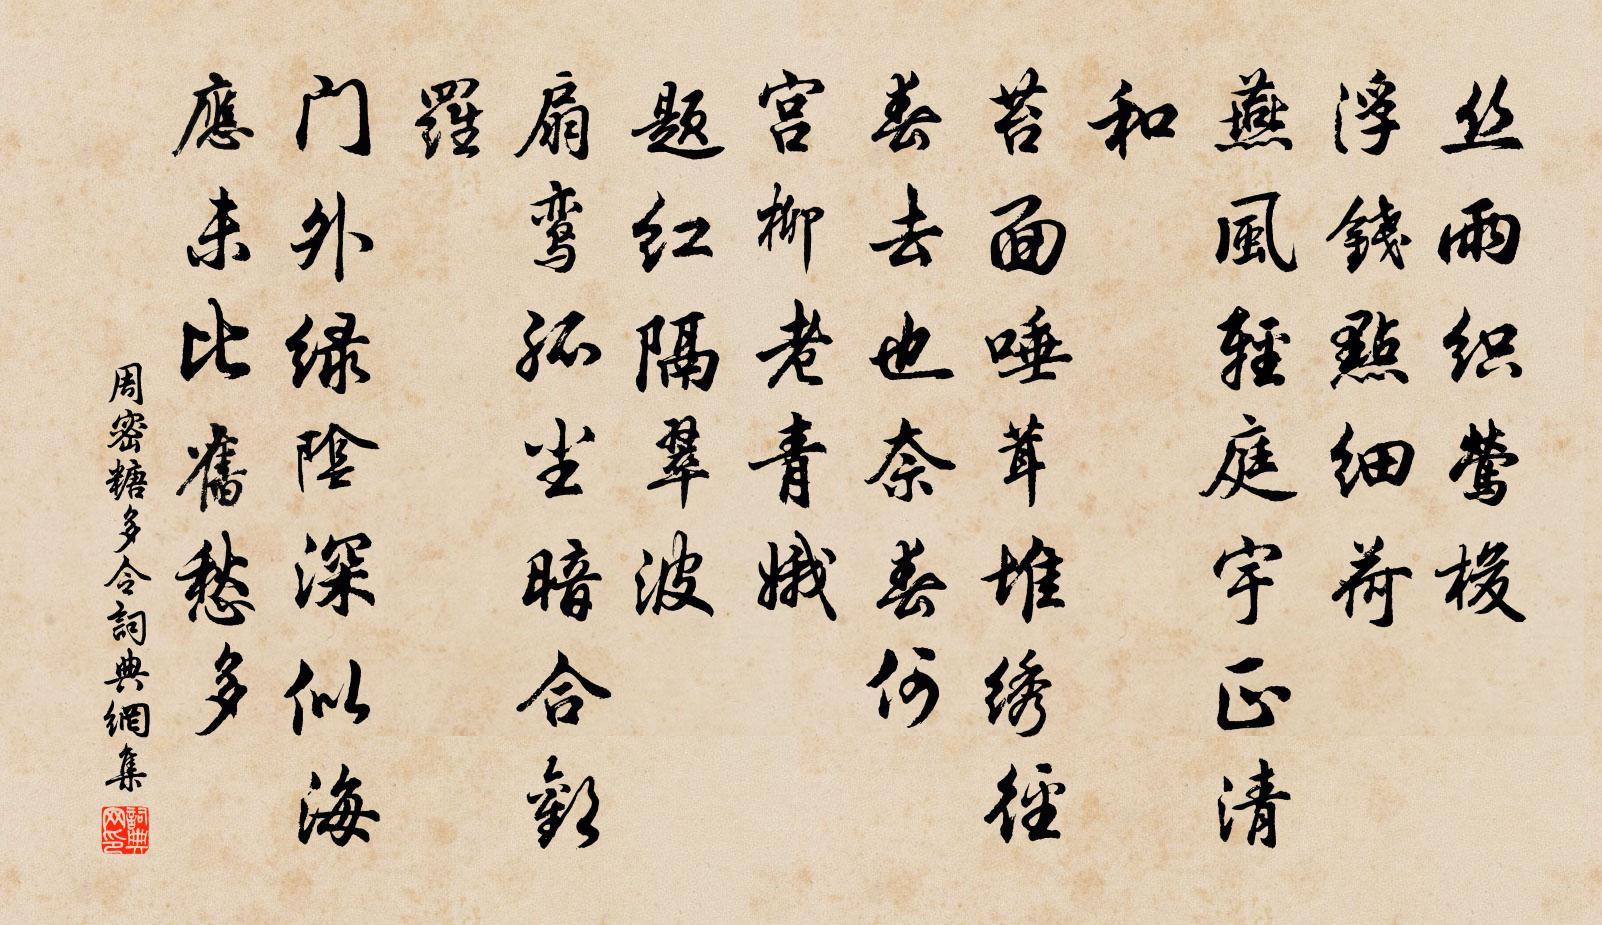 丝雨织鶯梭
浮錢點细荷
燕風輕庭宇正清
和
苔面唾茸堆绣径
春去也奈春何
宫柳老青娥
题红隔翠波
扇鸾孤尘暗合歡
羅
门外绿陰深似海
應未比舊愁多
周密糖多令詞典網集
詞典网印